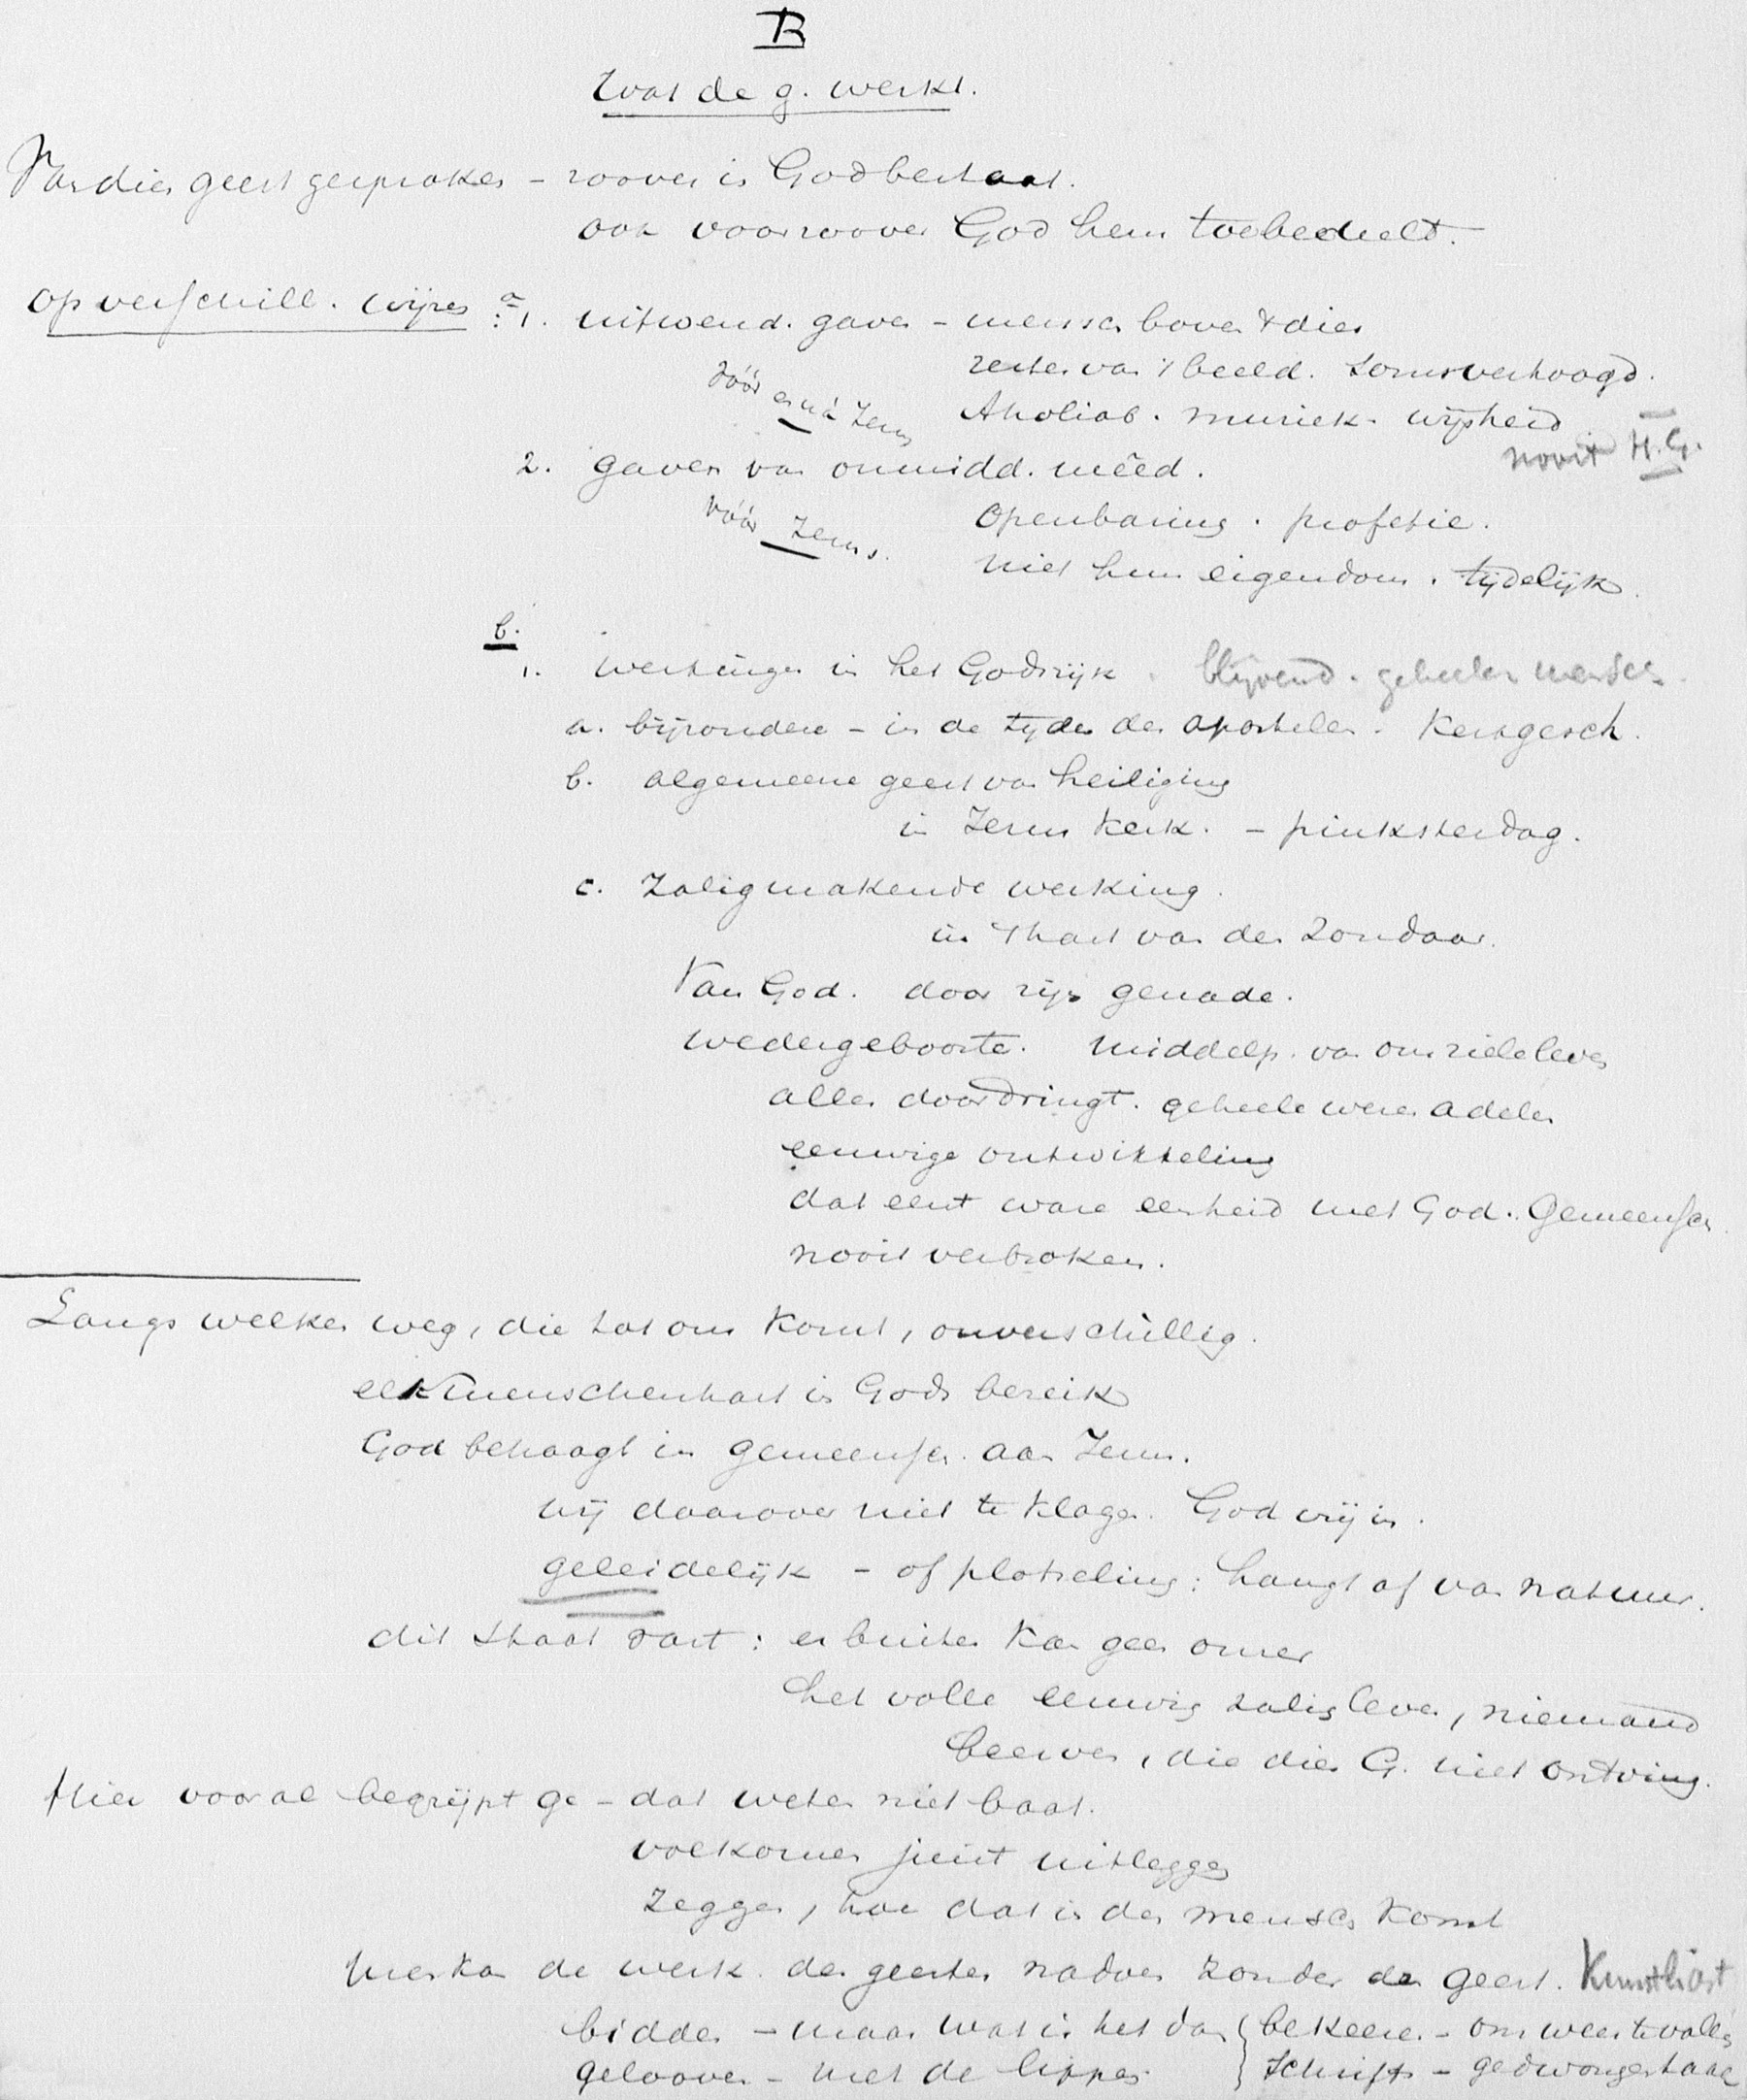 B
Wat de g. werkt.
Van dien geest gesproken - zoover in God bestaat.
ook voor zoover God hem toebedeelt.
op verschill. wijzen : a 1. uitwend. gaven - mensch boven 't dier
resten van 't beeld. soms verhoogd.
vóór en ná Jezus
Aholiab. muziek. wijsheid
nooit H.G.
2. gaven van onmidd. meêd.
vóór Jezus.
openbaring. profetie.
niet hun eigendom. tijdelijk.
b.
1. werkingen in het Godsrijk. blijvend. geheelen mensch.
a. bijzondere - in de tijden der apostelen. Kerkgesch.
b. algemeene geest van heiliging
in Jezus Kerk. - pinksterdag.
c. Zaligmakende werking.
in 't hart van den Zondaar.
Van God. door zijn genade.
wedergeboorte. middelp. van ons zieleleven
alles doordringt. geheele wezen adelen
eeuwige ontwikkeling
dat eerst ware eenheid met God. Gemeensch.
nooit verbroken.
Langs welken weg, die tot ons komt, onverschillig.
elk menschenhart in Gods bereik
God behaagt in gemeensch. aan Jezus.
wij daarover niet te klagen. God vrij in.
geleidelijk - of plotseling: hangt af van natuur.
dit staat vast: er buiten kan geen onzer
het volle eeuwig zalig leven, niemand
beerven, die dien G. niet ontving.
Hier vooral begrijpt ge - dat weten niet baat.
volkomen juist uitleggen
zeggen, hoe dat in den mensch komt
Men kan de werk. des geestes nadoen zonder den geest.
bidden - maar wat is het dan { bekeeren - om weer te vallen
gelooven - met de lippen. } Schrift - gedwongen taal